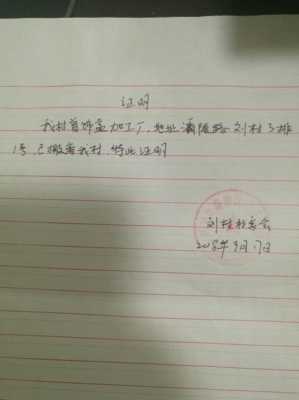 证明
我村首饰盒加工厂，地址灞陵路刘村3排
1号，已搬离我村，特此证明
刘村村委会
2018年9月17日